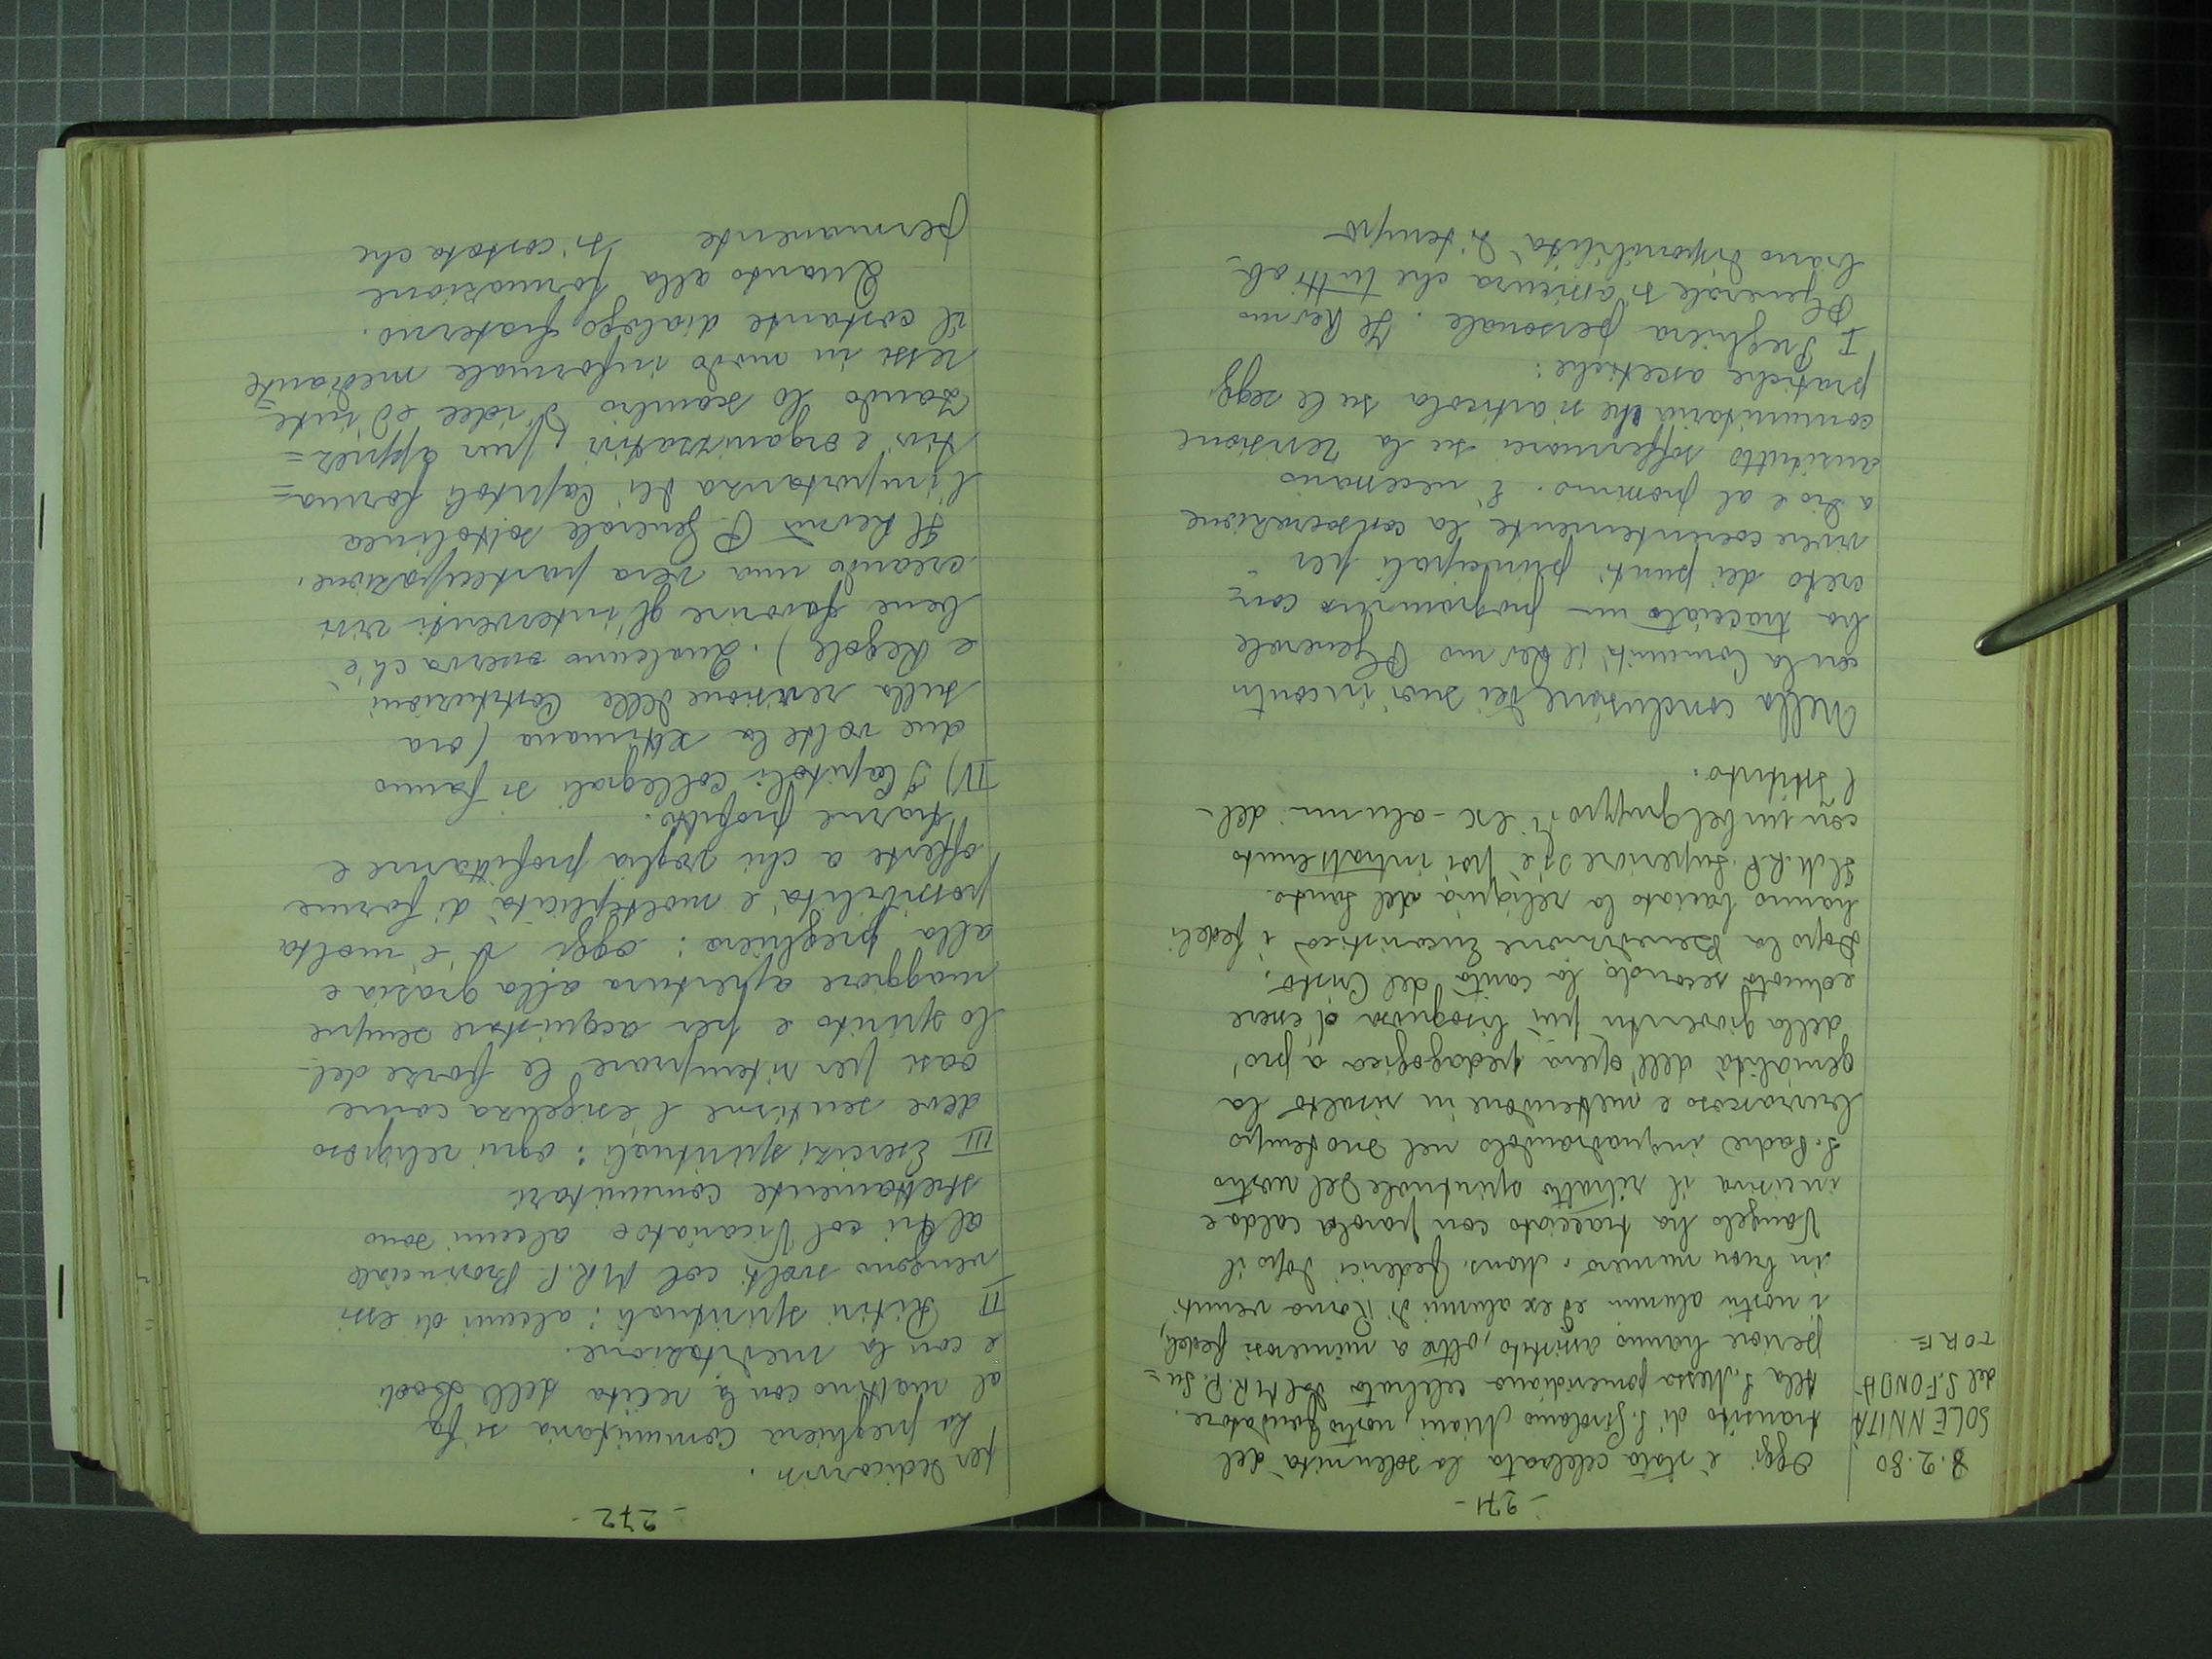 - 271 -
8.2.80
SOLENNITÀ
del S. FONDA-
TORE
Oggi è stata celebrata la solennità del
transito di S. Girolamo Miani, nostro fondatore.
Alla S. Messa pomeridiana celebrata dal M.R.P. Su=
periore hanno assistito, oltre a numerosi fedeli,
i nostri alunni ed ex alunni di Roma venuti
in buon numero. Mons. Federici dopo il
Vangelo ha tracciato con parola calda e
incisiva il ritratto spirituale del nostro
S. Padre inquadrandolo nel suo tempo
burrascoso e mettendone in risalto la
genialità dell'opera pedagogica a pro'
della gioventù più bisognosa d'essere
educata secondo la carità del Cristo.
Dopo la Benedizione Eucaristica i fedeli
hanno baciato la reliquia del Santo.
Il M.R.P. Superiore s'è poi intrattenuto
con un bel gruppo di ex-alunni del-
l'Istituto.
Nella conclusione dei suoi incontri
con la Comunità il Rev.mo P. Generale
ha tracciato un programma con=
creto dei punti principali per
vivere coerentemente la consacrazione
a Dio e al prossimo. È necessario
anzitutto soffermarci su la revisione
comunitaria che s'articola su le segg.
pratiche ascetiche:
I Preghiera personale. Il Rev.mo
P. Generale s'assicura che tutti ab-
biano disponibilità di tempo
- 272 -
per dedicarvisi.
La preghiera comunitaria si fa
al mattino con la recita delle Lodi
e con la meditazione.
II Ritiri spirituali: alcuni di essi
vengono svolti col M.R.P. Provinciale
altri col Vicariato e alcuni sono
strettamente comunitari
III Esercizi spirituali: ogni religioso
deve sentirne l'esigenza come
oasi per ritemprare le forze del-
lo spirito e per acquistare sempre
maggiore apertura alla grazia e
alla preghiera: oggi v'è molta
possibilità e molteplicità di forme
offerte a chi voglia profittarne e
trarne profitto.
IV) I Capitoli collegiali si fanno
due volte la settimana (ora
sulla revisione delle Costituzioni
e Regole). Qualcuno osserva ch'è
bene favorire gl'interventi vivi
creando una vera partecipazione.
Il Rev.mo P. Generale sottolinea
l'importanza dei Capitoli forma=
tivi e organizzativi, pur apprez=
zando lo scambio d'idee ed inte-
ressi in modo informale mediante
il costante dialogo fraterno.
Quando alla formazione
permanente si costata che